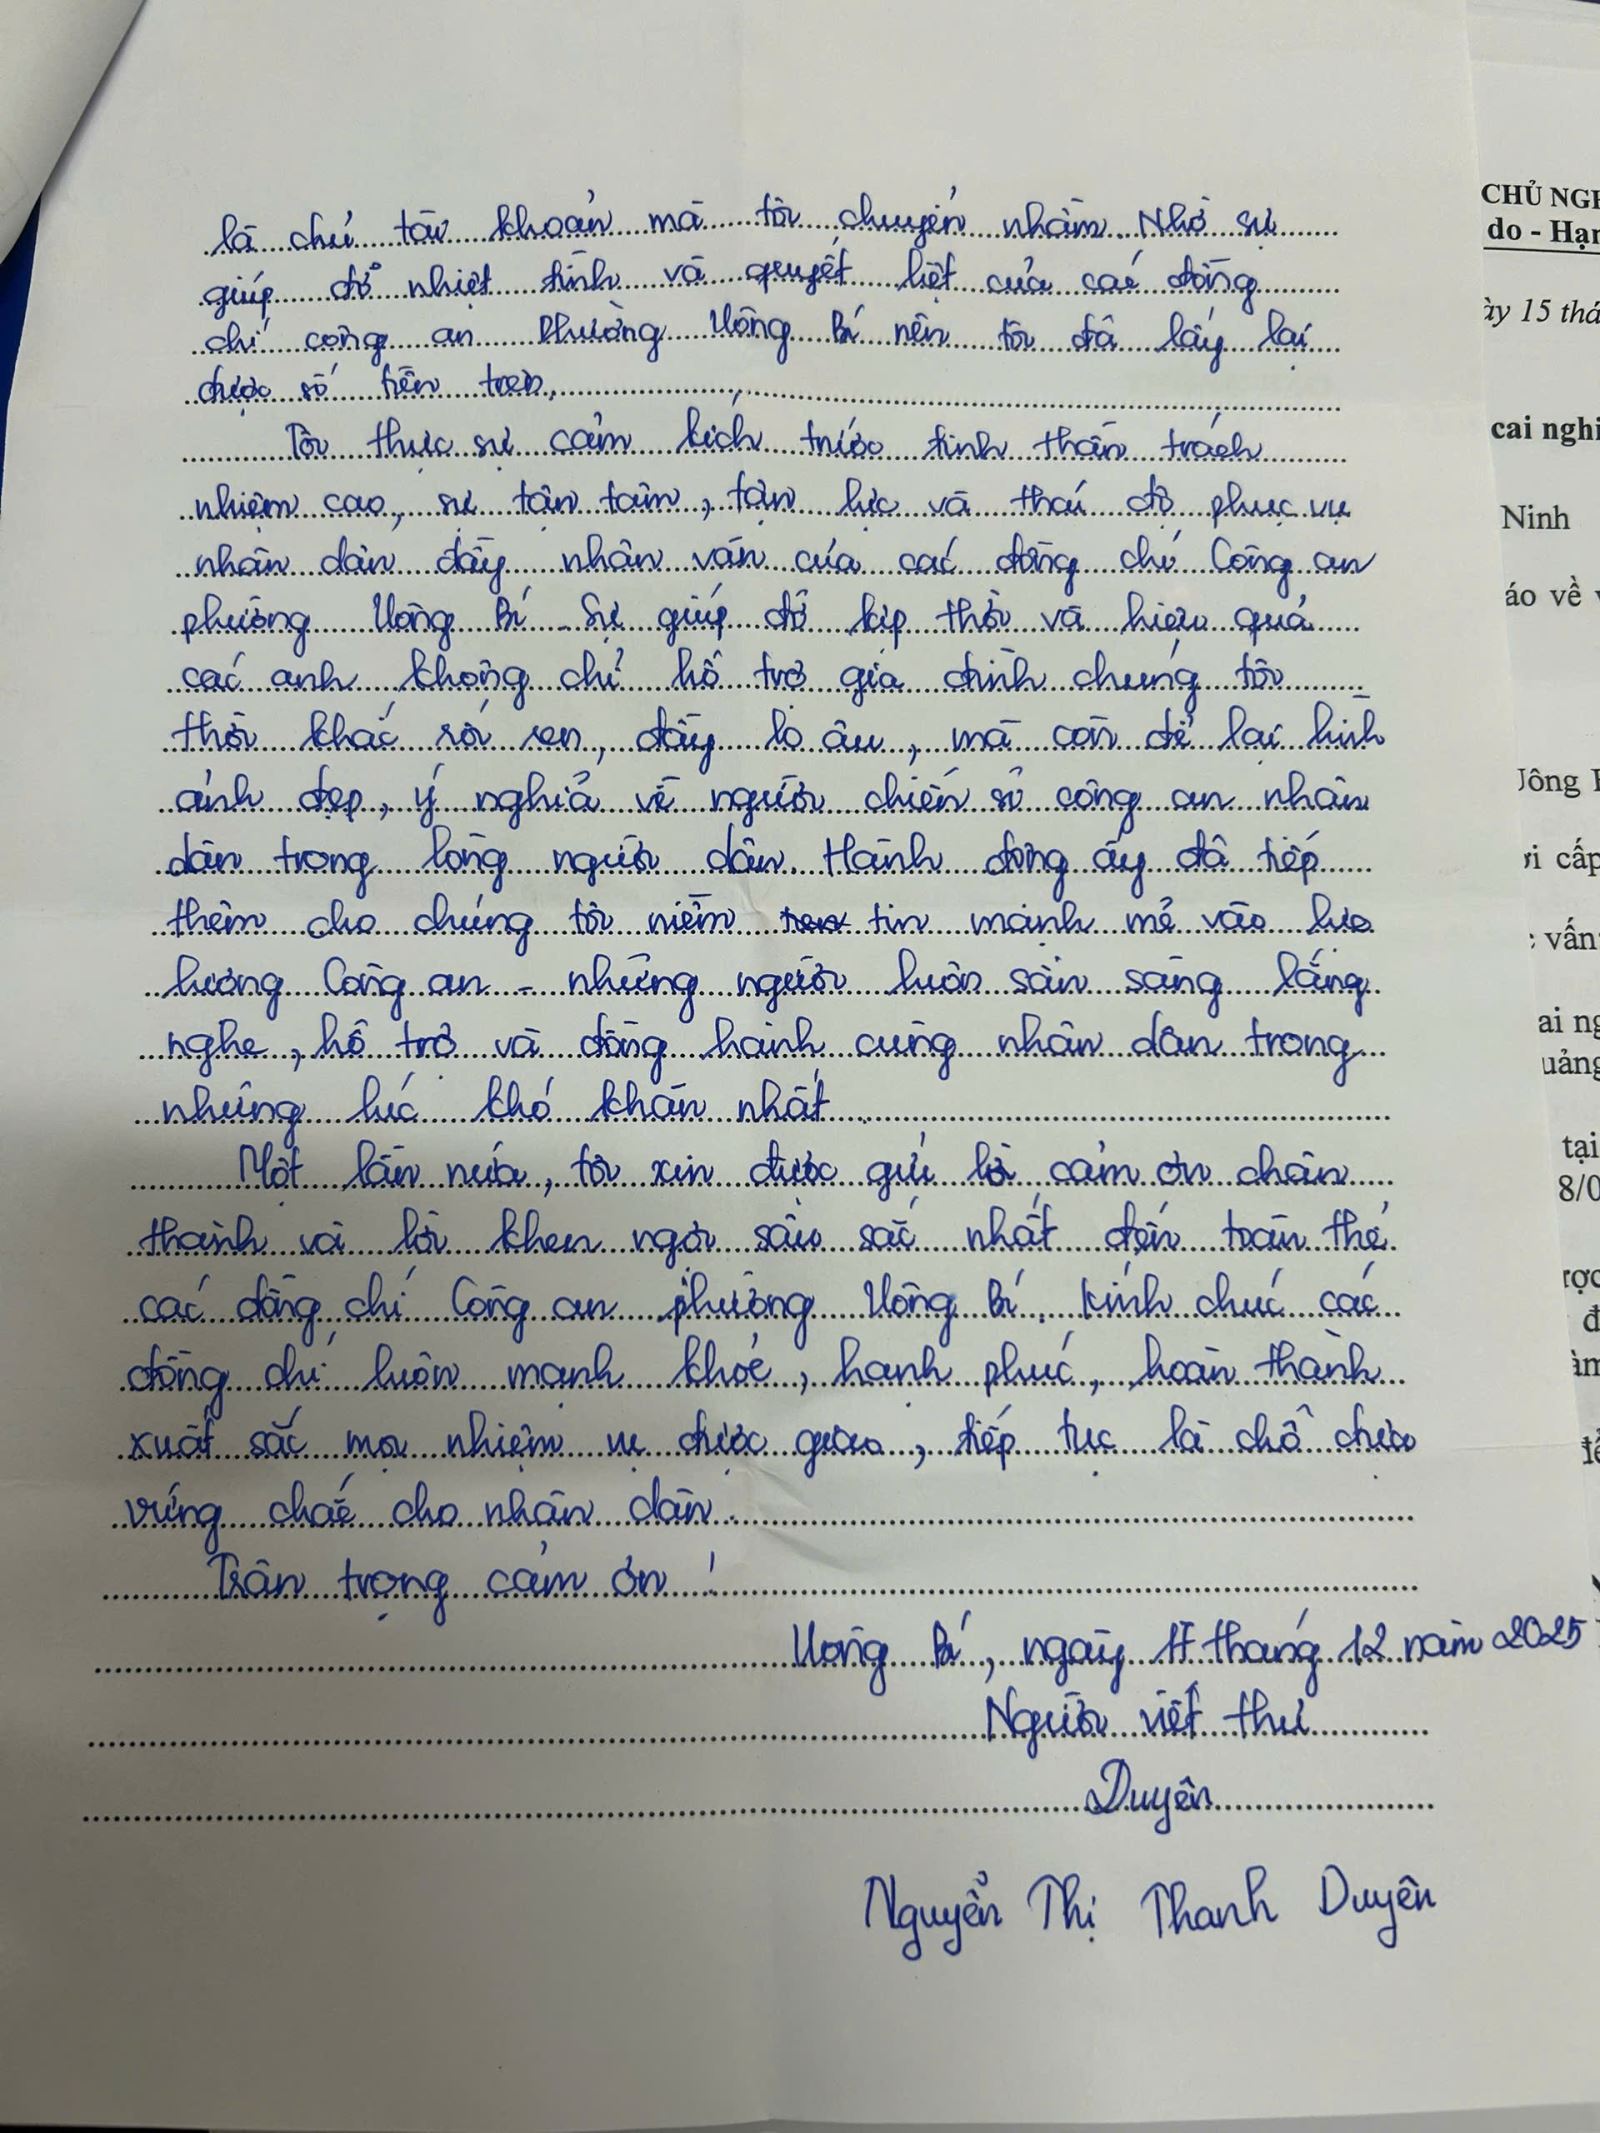 là chủ tài khoản mà tôi chuyển nhầm. Nhờ sự
giúp đỡ nhiệt tình và quyết liệt của các đồng
chí công an Phường Uông Bí nên tôi đã lấy lại
được số tiền trên.
Tôi thực sự cảm kích trước tinh thần trách
nhiệm cao, sự tận tâm, tận lực và thái độ phục vụ
nhân dân đầy nhân văn của các đồng chí Công an
phường Uông Bí. Sự giúp đỡ kịp thời và hiệu quả
các anh không chỉ hỗ trợ gia đình chúng tôi
thời khắc rối ren, đầy lo âu, mà còn để lại hình
ảnh đẹp, ý nghĩa về người chiến sỹ công an nhân
dân trong lòng người dân. Hành động ấy đã tiếp
thêm cho chúng tôi niềm tin mạnh mẽ vào lực
lượng Công an - những người luôn sẵn sàng lắng
nghe, hỗ trợ và đồng hành cùng nhân dân trong
những lúc khó khăn nhất.
Một lần nữa, tôi xin được gửi lời cảm ơn chân
thành và lời khen ngợi sâu sắc nhất đến toàn thể
các đồng chí Công an phường Uông Bí. Kính chúc các
đồng chí luôn mạnh khỏe, hạnh phúc, hoàn thành
xuất sắc mọi nhiệm vụ được giao, tiếp tục là chỗ dựa
vững chắc cho nhân dân.
Trân trọng cảm ơn!
Uông Bí, ngày 17 tháng 12 năm 2025
Người viết thư
Duyên
Nguyễn Thị Thanh Duyên
CHỦ NGH
do - Hạn
ày 15 thá
cai nghi
Ninh
áo về v
Uông B
ời cấp
vấn
ai ng
uảng
tại
8/0
rợc
đ
àm